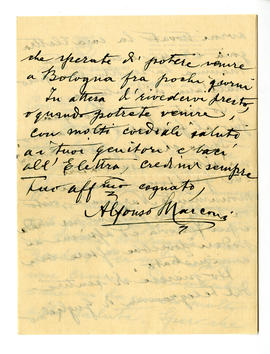 che sperate di potere venire
a Bologna fra pochi giorni
In attesa di rivedervi presto,
o quando potrete venire,
con molti cordiali saluto
ai tuoi genitori e baci
all' Elettra credimi sempre
tuo aff cognato,
Alfonso Marconi